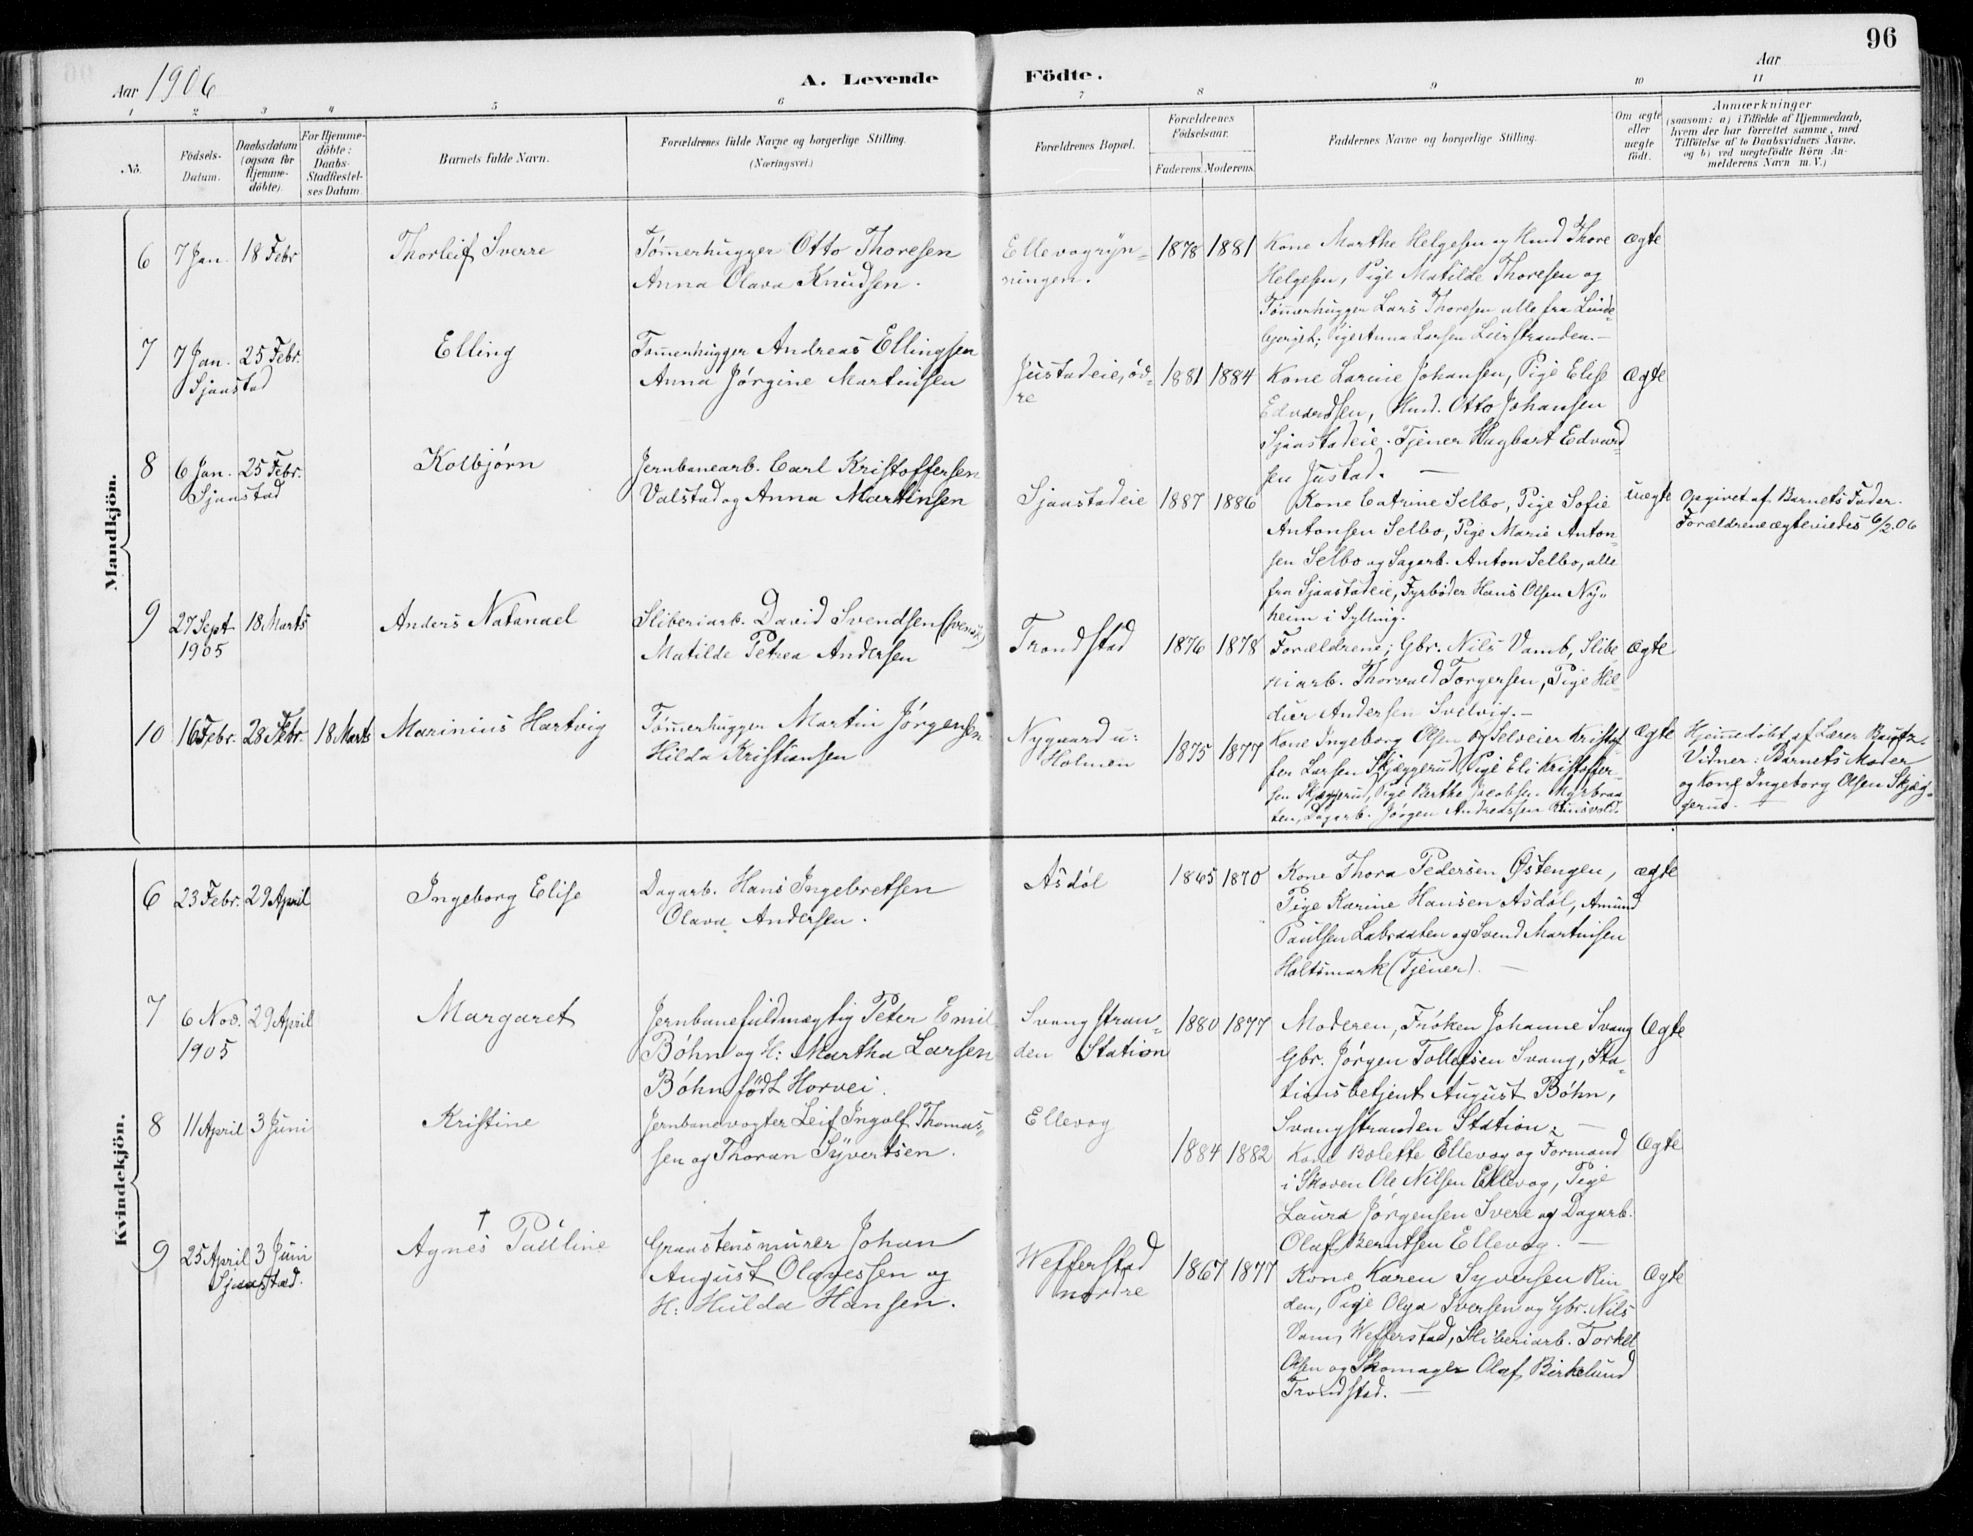 96
Aar 1906
A. Levende Födte.
Aar
1 2 3 4 5 6 7 8 9 10 11
No.
Födsels-Datum.
Daabsdatum (ogsaa for Hjemme-döbte).
For Hjemme-döbte: Daabs-Stadfæstel-ses Datum.
Barnets fulde Navn.
Forældrenes fulde Navne og borgerlige Stilling.
(Næringsvei.)
Forældrenes Bopæl.
Forældrenes Födselsaar.
Faderens. Moderens.
Faddernes Navne og borgerlige Stilling.
Om ægte eller uægte födt.
Anmærkninger
(saasom: a) i Tilfælde af Hjemmedaab,
hvem der har forrettet samme, med
Tilföielse af to Daabsvidners Navne,
og b) ved uægtefödte Börn An-
melderens Navn m. V.)
Mandkjön.
6 7 Jan. 18 Febr Thorleif Sverre
Tømmerhugger Otto Thoresen
Anna Olava Knudsen.
Ellevogryn-
ningen.
1878 1881
Kone Marthe Helgesen og Hmd Thore
Helgesen, Pige Matilde Thoresen og
Tømmerhugger Lars Thoresen alle fra Linde-
Pige Anna Larsen Leirstranden.—
Ægte
7 7 Jan. 25 Febr.
Sjaastad
Elling
Tømmerhugger Andreas Ellingsen
Anna Jørgine Martinsen
Justadeie,ød-
re
1881 1884
Kone Larine Johansen, Pige Elise
Edvardsen, Hmd. Otto Johansen
Sjaastadeie. Tjener Hagbart Edvard-
sen Justad. —
Ægte
8 6 Jan. 25 Febr.
Sjaastad
Kolbjørn
Jernbanearb. Carl Kristoffersen
Valstad og Anna Martinsen
Sjaastadeie
1887 1886
Kone Catrine Selbo, Pige Sofie
Antonsen Selbo, Pige Marie Anton-
sen Selbo og Sagarb. Anton Selbo, alle
fra Sjaastadeie, Fyrbøder Hans Olsen Ny-
heim i Sylling.
uægte
Opgivet af Barnets Fader.
Forældrene ægteviedes 6/2.06
9 27 Sept 18 Marts
1905
Anders Natanael
Sliberiarb. David Svendsen (svensk)
Matilde Petrea Andersen
Trondstad
1876 1878
Forældrene; Gbr. Nils Vamb, Slibe
riarb. Thorvald Torgersen, Pige Hil-
dur Andersen Svelvig.—
Ægte
10 16 Febr. 28 Febr. 18 Marts
Marinius Hartvig
Tømmerhugger Martin Jørgensen
Hilda Kristiansen
Nygaard u:
Holmen
1875 1877
Kone Ingeborg Olsen og Selveier Kristof-
fer Larsen Skjæggerud, Pige Eli Kristoffer-
sen Skjæggerud, Pige Berthe Jacobsen Myrbraa
ten, Dagarb. Jørgen Andreassen
Ægte
Hjemmedøbt af Lærer
Vidner: Barnets Moder
og Kone Ingeborg Olsen Skjæg-
gerud. —
Kvindekjön.
6 23 Febr. 29 April
Ingeborg Elise
Dagarb. Hans Ingebretsen
Olava Andersen.
Asdøl
1865 1870
Kone Thora Pedersen Østengen,
Pige Karine Hansen Asdøl, Amund
Paulsen Labraaten og Svend Martinsen
Holtsmark (Tjener). —
Ægte
7 6 Nov. 29 April
1905
Margaret
Jernbanefuldmægtig Peter Emil
Bøhn og H: Martha Larsen
Bøhn født Horvei.
Svangstran-
den Station
1880 1877
Moderen, Frøken Johanne Svang
Gbr. Jørgen Tollefsen Svang, Sta-
tionsbetjent August Bøhn,
Svangstranden Station. —
Ægte
8 11 April 3 Juni
Kristine
Jernbanevogter Leif Ingolf Thomas-
sen og Thoran Syvertsen.
Ellevog
1884 1882
Kone Bolette Ellevog og Formand
i Skoven Ole Nilsen Ellevog, Pige
Laura Jørgensen Svere og Dagarb.
Olaf Berntsen Ellevog. —
Ægte
9 25 April 3 Juni
Sjaastad.
†
Agnes Pauline
Graastensmurer Johan
August Olavessen og
H: Hulda Hansen.
Wefferstad
nordre
1867 1877
Kone Karen Syversen Rin
den, Pige Olga Iversen og Gbr. Nils
Vam, Wefferstad, Sliberiarb. Torkel
Olsen og Skomager Olaf Birkelund
Trondstad. —
Ægte